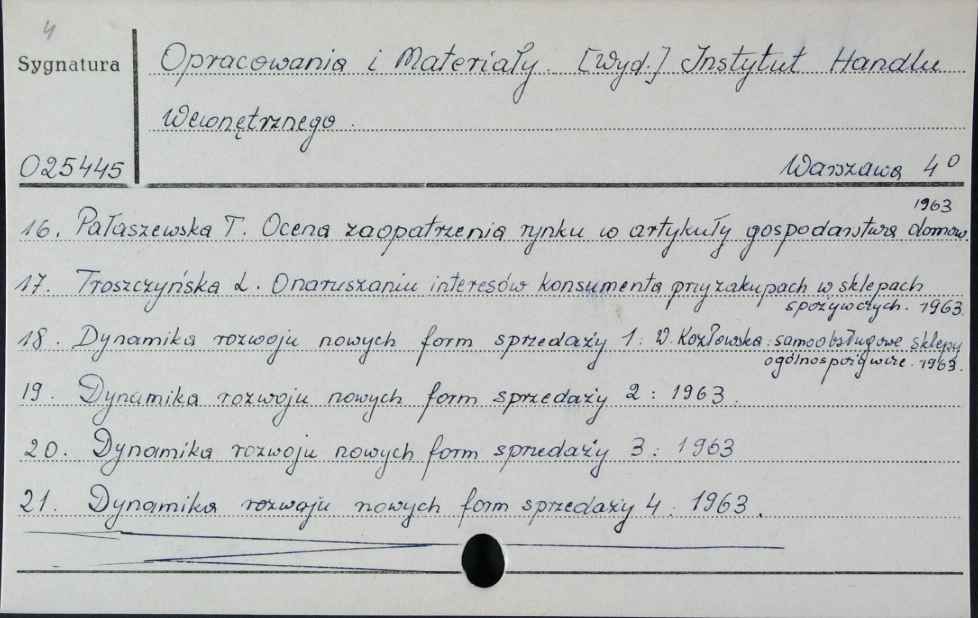 4
Sygnatura
Opracowania i Materiały. [Wyd.] Instytut Handlu
Wewnętrznego.
025445
Warszawa 4⁰
1963
16. Pałaszewska T. Ocena zaopatrzenia rynku w artykuły gospodarstwa domow.
17. Troszczyńska L. O naruszaniu interesów konsumenta przy zakupach w sklepach
spożywczych. 1963.
18. Dynamika rozwoju nowych form sprzedaży 1: W. Kozłowska: samoobsługowe sklepy
ogólnospożywcze. 1963.
19. Dynamika rozwoju nowych form sprzedaży 2: 1963.
20. Dynamika rozwoju nowych form sprzedaży 3: 1963
21. Dynamika rozwoju nowych form sprzedaży 4: 1963.